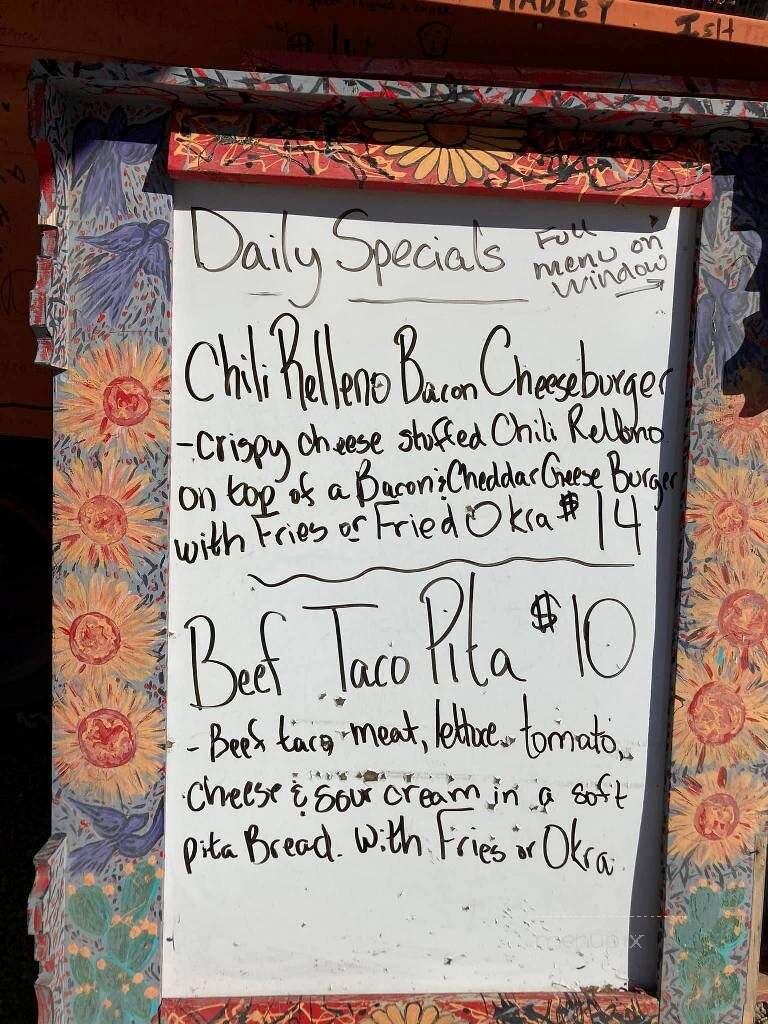 HADLEY
ISH
Daily Specials
Full
menu on
window
Chili Relleno Bacon Cheeseburger
-crispy cheese stuffed Chili Relleno
on top of a Bacon & Cheddar Cheese Burger
with Fries or Fried Okra $14
Beef Taco Pita $10
- Beef taco meat, lettuce, tomato,
cheese & sour cream in a soft
pita Bread. With Fries or Okra
menupix